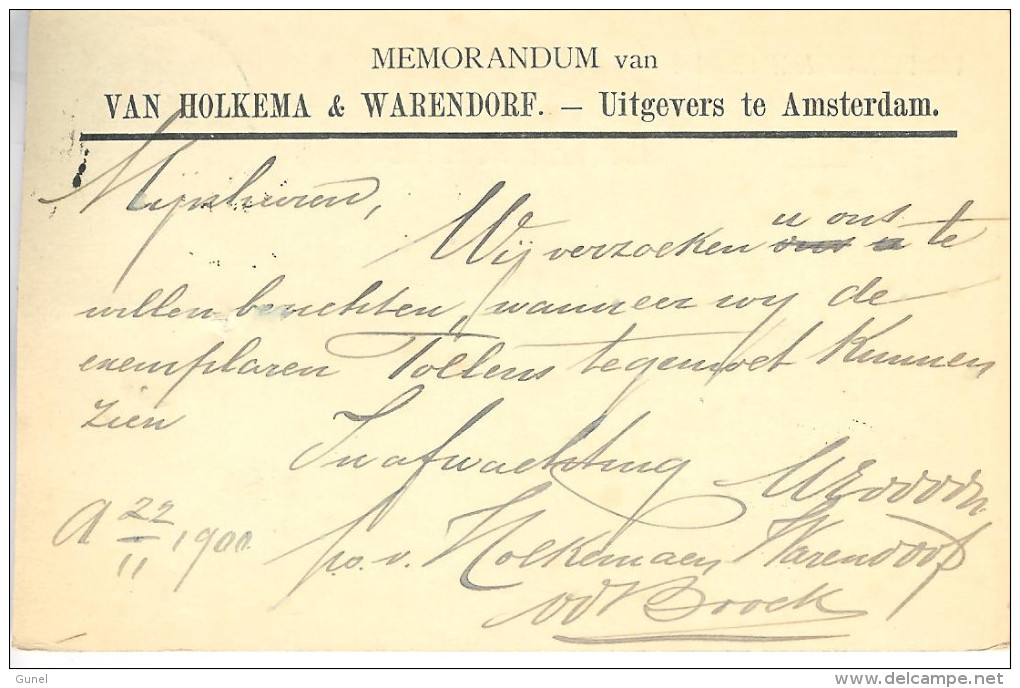 MEMORANDUM van
VAN HOLKEMA & WARENDORF. — Uitgevers te Amsterdam.
Mijnheeren,
u ons
Wij verzoeken ons u te
willen berichten, wanneer wy de
exemplaren Tollens tegemoet kunnen
zien
In afwachting
A 22/11 1900
po. v. Holkema en Warendorf
vd Broek
Gunel
delcampe.net